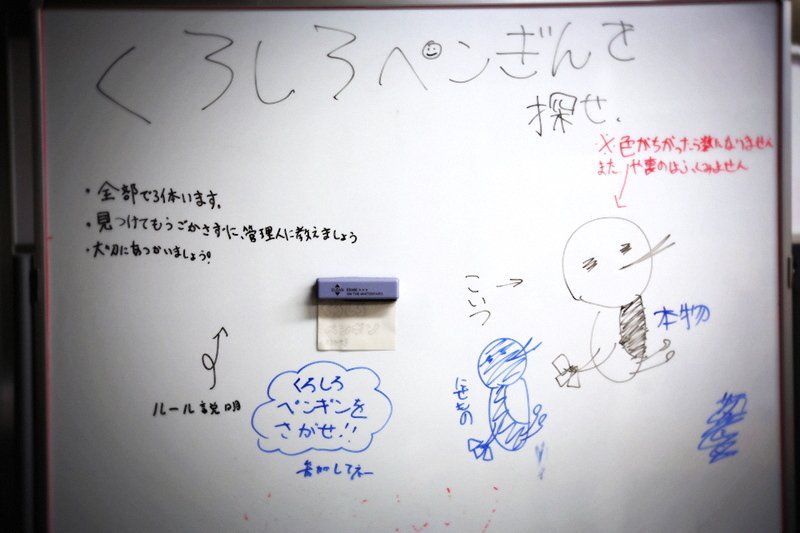 くろしろペンぎんを
探せ.
※色がちがったら数になりません
また
・全部で3体います.
・見つけてもうごかさずに、管理人に教えましょう
・大切にあつかいましょう!
こいつ
本物
にせもの
ルール説明
くろしろ
ペンギンを
さがせ!!
参加してネー